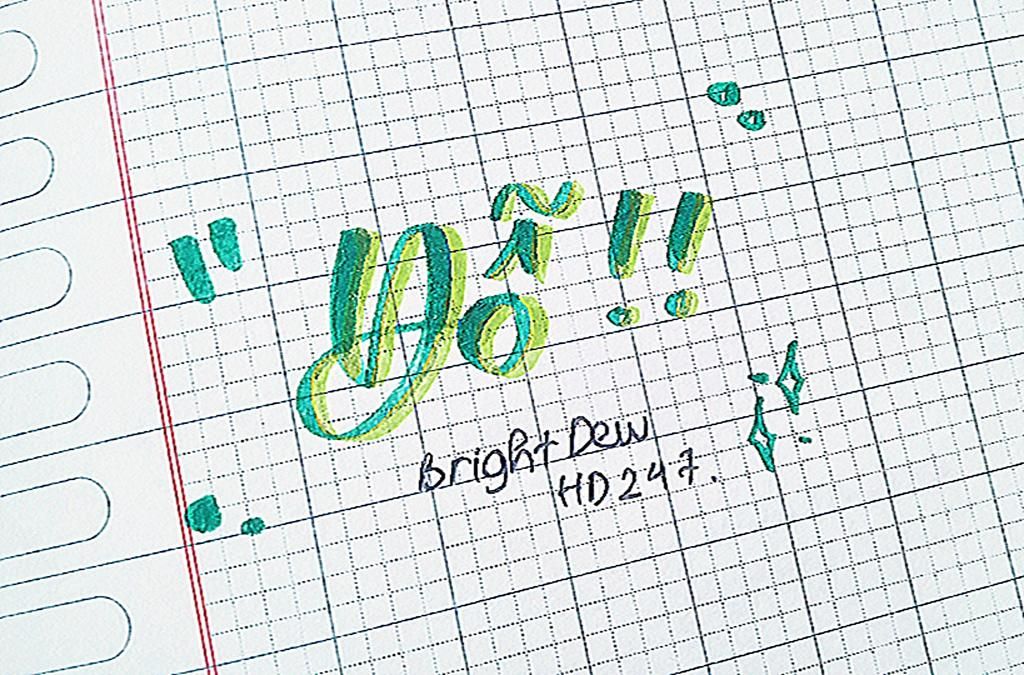 Đỗ!!
Bright Dew
HD247.